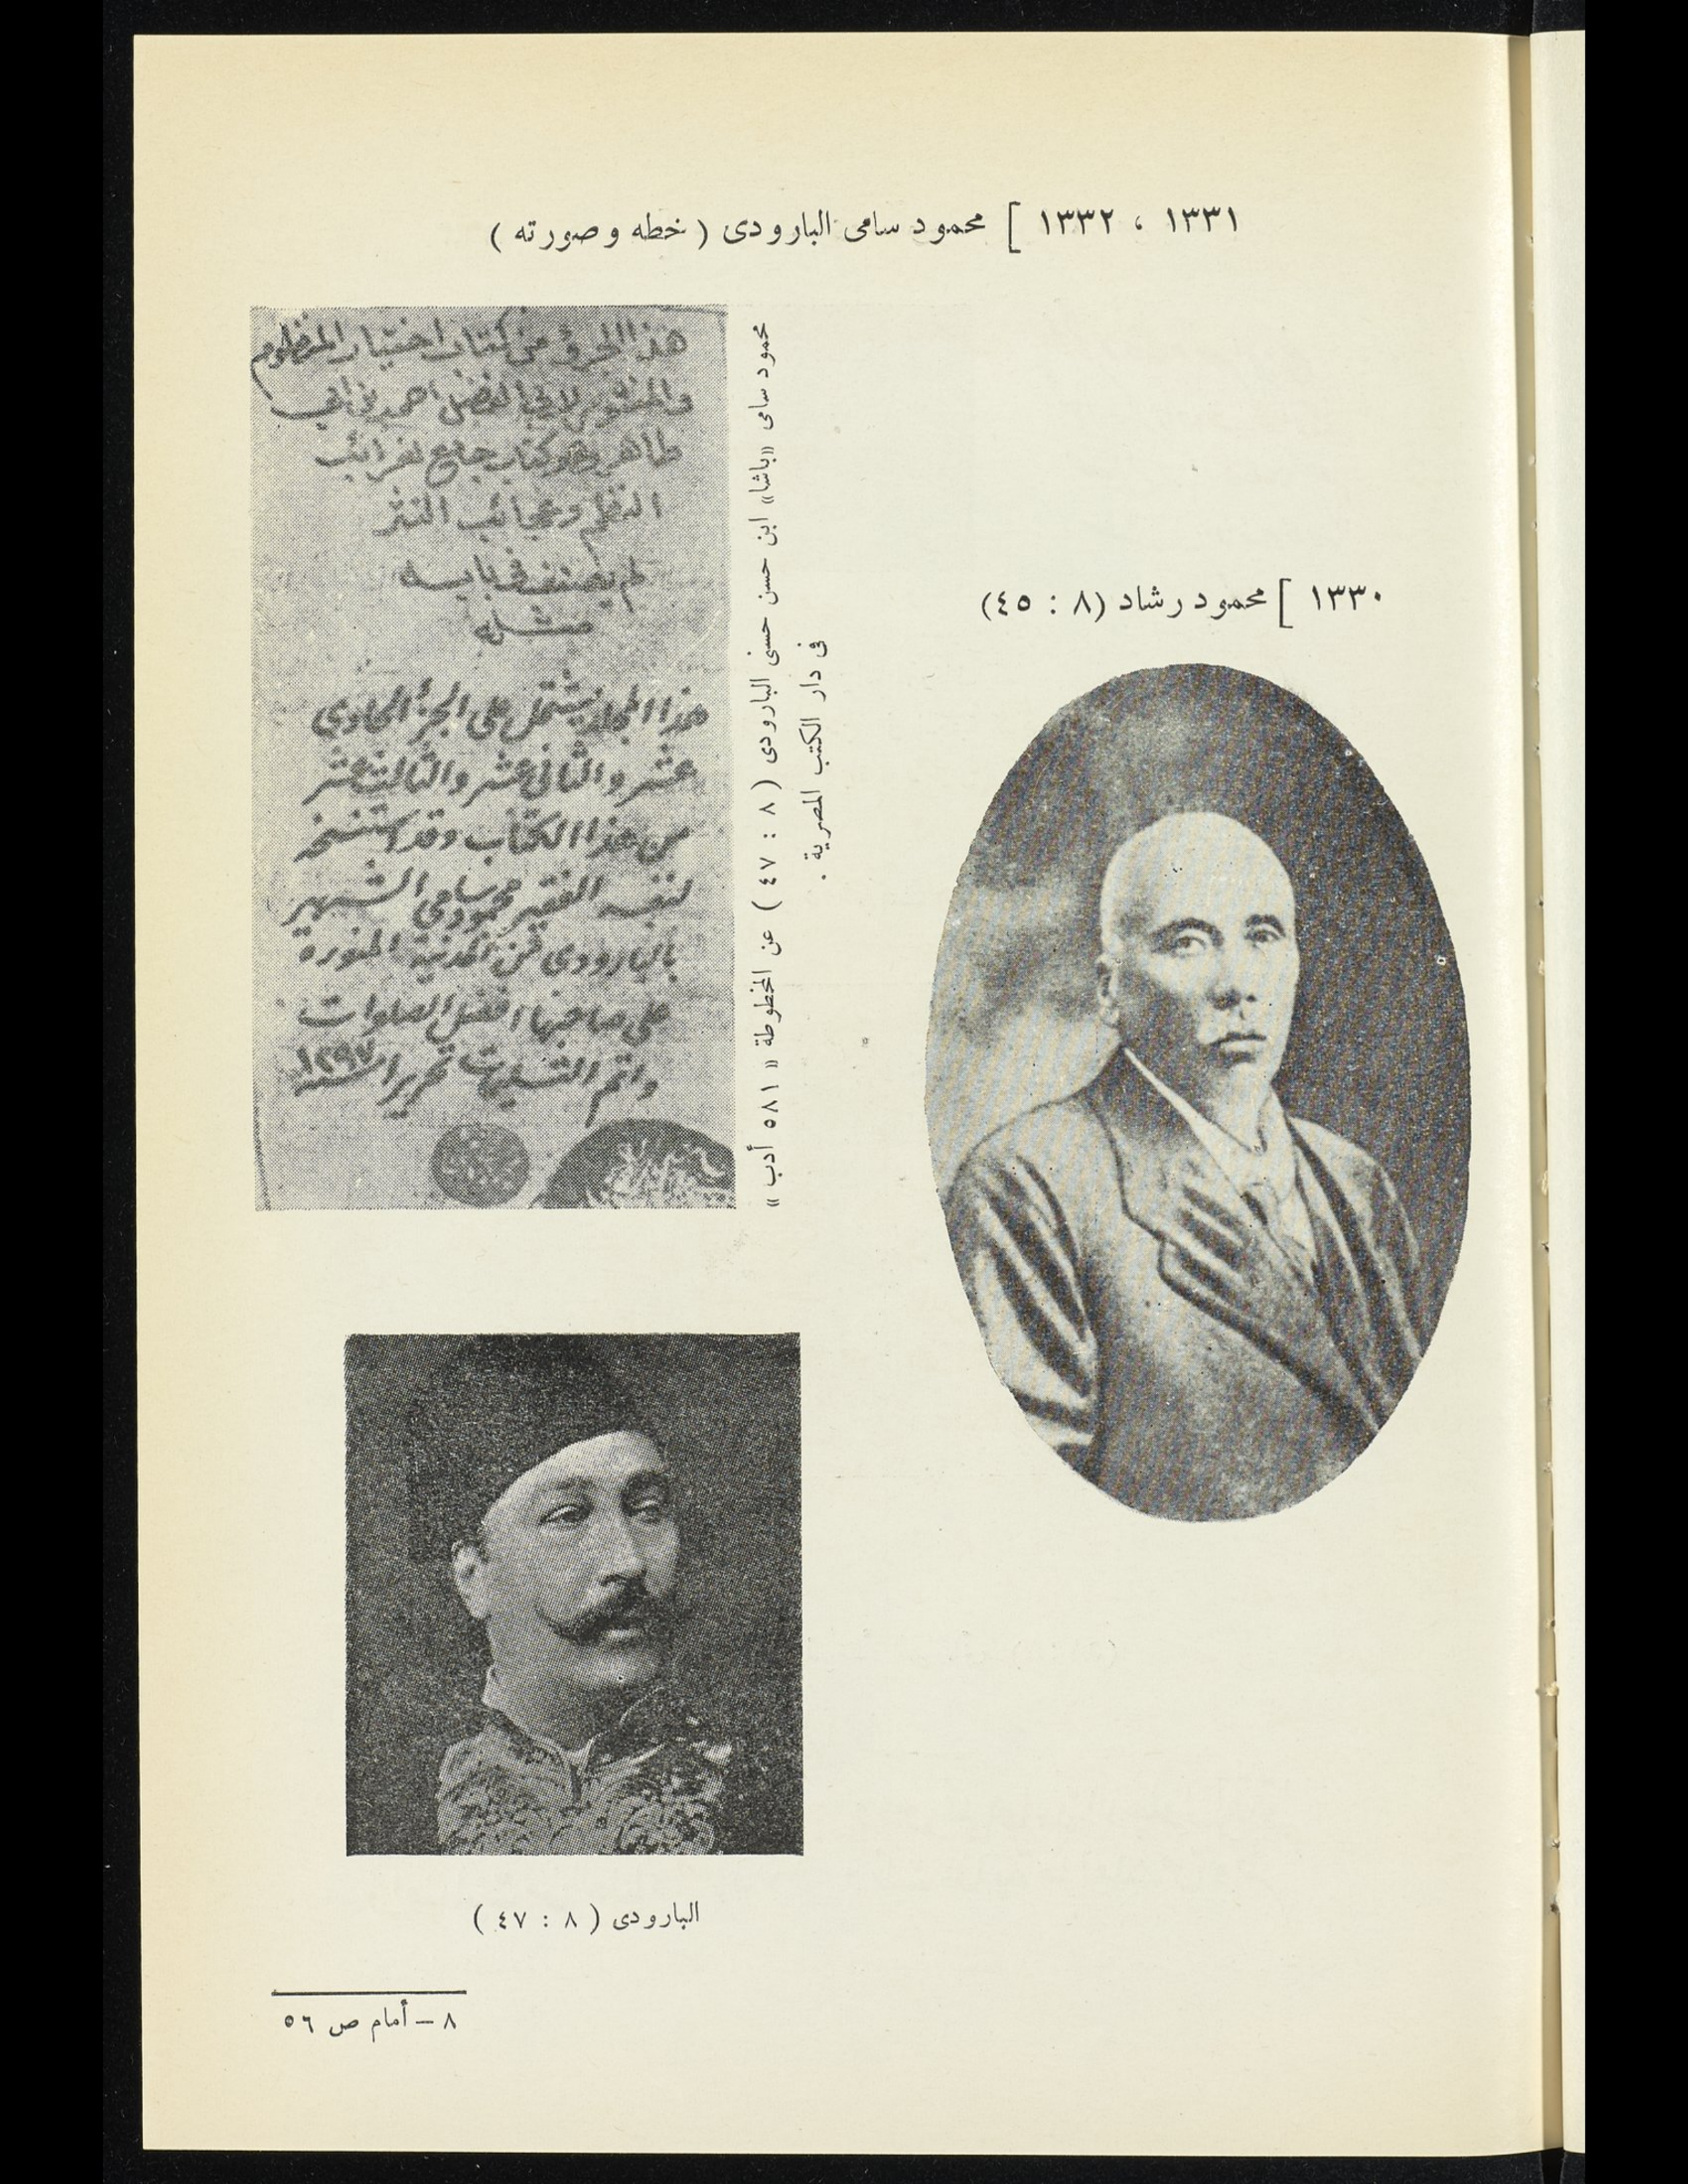 ١٣٣١ ، ١٣٣٢ ] محمود سامى البارودى ( خطه وصورته )
هذا الجزؤ من كتاب اختيار المنظوم
والمنثور لابي الفضل احمد بن ابي
طاهر وهو كتاب جامع لغرائب
النظم وعجائب النثر
لم يصنف في بابه
مثله
هذا المجلد يشتمل على الجزء الحادي
عشر والثاني عشر والثالث عشر
من هذا الكتاب وقد استنسخه
لنفسه الفقير محمود سامي الشهير
بالبارودى من المدينة المنورة
على صاحبها افضل الصلوات
واتم التسليمات تحريرا سنة ١٢٩٧
محمود سامى «باشا» ابن حسن حسنى البارودى ( ٨ : ٤٧ ) عن المخطوطة « ٥٨١ أدب »
فى دار الكتب المصرية .
١٣٣٠ ] محمود رشاد (٨ : ٤٥)
البارودى ( ٨ : ٤٧ )
٨ – أمام ص ٥٦